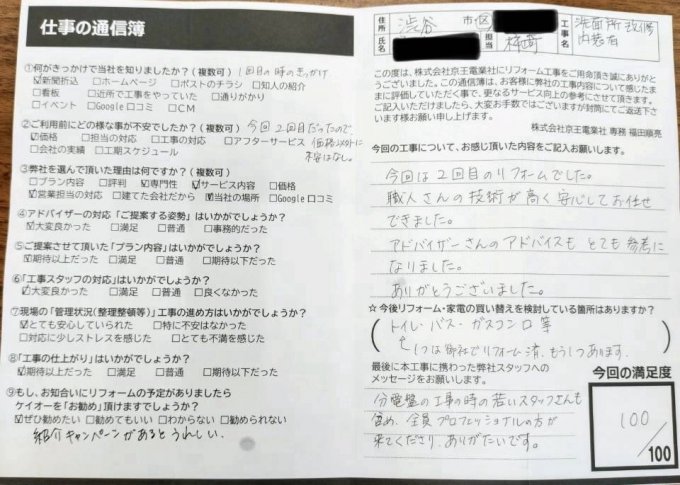 仕事の通信簿
①何がきっかけで当社を知りましたか？(複数可) 1回目の時のきっかけ
☑新聞折込 □ホームページ □ポストのチラシ □知人の紹介
□看板 □近所で工事をやっていた □通りがかり
□イベント □Google口コミ □CM
②ご利用前にどの様な事が不安でしたか？(複数可) 今回2回目だったので、
☑価格 □担当の対応 □工事の対応 □アフターサービス 価格以外に
□会社の実績 □工期スケジュール 不安はなし。
③弊社を選んで頂いた理由は何ですか？(複数可)
□プラン内容 □評判 ☑専門性 ☑サービス内容 □価格
☑営業担当の対応 □建てた会社だから ☑当社の場所 □Google口コミ
④アドバイザーの対応「ご提案する姿勢」はいかがでしょうか？
☑大変良かった □満足 □普通 □事務的だった
⑤ご提案させて頂いた「プラン内容」はいかがでしょうか？
☑期待以上だった □満足 □普通 □期待以下だった
⑥「工事スタッフの対応」はいかがでしょうか？
☑大変良かった □満足 □普通 □良くなかった
⑦現場の「管理状況(整理整頓等)」工事の進め方はいかがでしょうか？
☑とても安心していられた □特に不安はなかった
□対応に少しストレスを感じた □とても不満を感じた
⑧「工事の仕上がり」はいかがでしょうか？
☑期待以上だった □満足 □普通 □期待以下だった
⑨もし、お知合いにリフォームの予定がありましたら
ケイオーを「お勧め」頂けますでしょうか？
☑ぜひ勧めたい □勧めてもいい □わからない □勧められない
紹介キャンペーンがあるとうれしい。
住所 渋谷 市区
氏名 担当 柿崎
工事名 洗面所改修 内装有
この度は、株式会社京王電業社にリフォーム工事をご用命頂き誠にありが
とうございました。この通信簿は、お客様に弊社の工事内容について感じたま
まに評価していただく事で、更なるサービス向上の参考にさせて頂きます。
ご記入いただけましたら、大変お手数ではございますが封筒にてご返送下さ
います様お願い申し上げます。
株式会社京王電業社 専務 福田順亮
今回の工事について、お感じ頂いた内容をご記入お願いします。
今回は2回目のリフォームでした。
職人さんの技術が高く安心してお任せ
できました。
アドバイザーさんのアドバイスもとても参考に
なりました。
ありがとうございました。
☆今後リフォーム・家電の買い替えを検討している箇所はありますか？
(トイレ・バス・ガスコンロ等
1つは御社でリフォーム済、もう1つあります。)
最後に本工事に携わった弊社スタッフへの
メッセージをお願いします。
分電盤の工事の時の若いスタッフさんも
含め、全員プロフェッショナルの方が
来てくださり、ありがたいです。
今回の満足度
100
/100